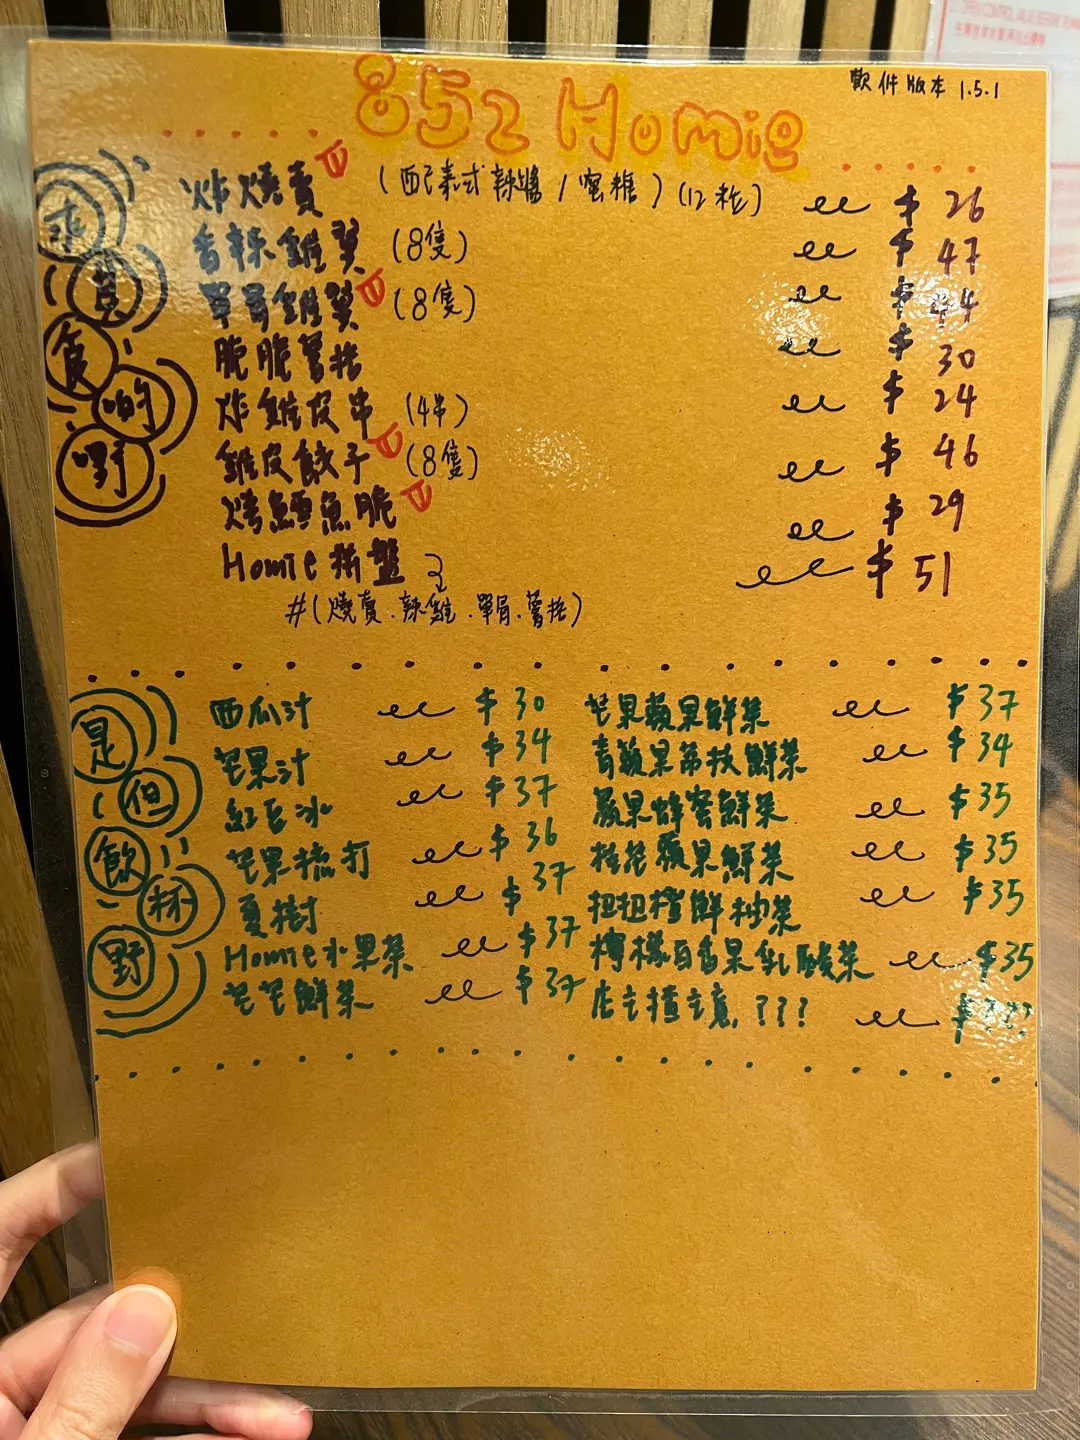 852 Homie
軟件版本 1.5.1
求其食啲嘢
炸燒賣 (配泰式辣醬 / 蜜糖) (12粒) $26
香辣雞翼 (8隻) $47
單骨雞翼 (8隻) $44
脆脆薯格 $30
炸雞皮串 (4串) $24
雞皮餃子 (8隻) $46
烤鱈魚脆 $29
Homie拼盤 $51
#(燒賣.辣雞.單骨.薯格)
是但飲杯野
西瓜汁 $30
芒果汁 $34
紅豆冰 $37
芒果梳打 $36
夏樹 $37
Homie水果茶 $37
芒芒鮮茶 $37
芒果蘋果鮮茶 $37
青蘋果荔枝鮮茶 $34
蘋果蜂蜜鮮茶 $35
桂花蘋果鮮茶 $35
柑桔橙鮮柚茶 $35
檸檬百香果乳酸茶 $35
店主揸主意??? $???